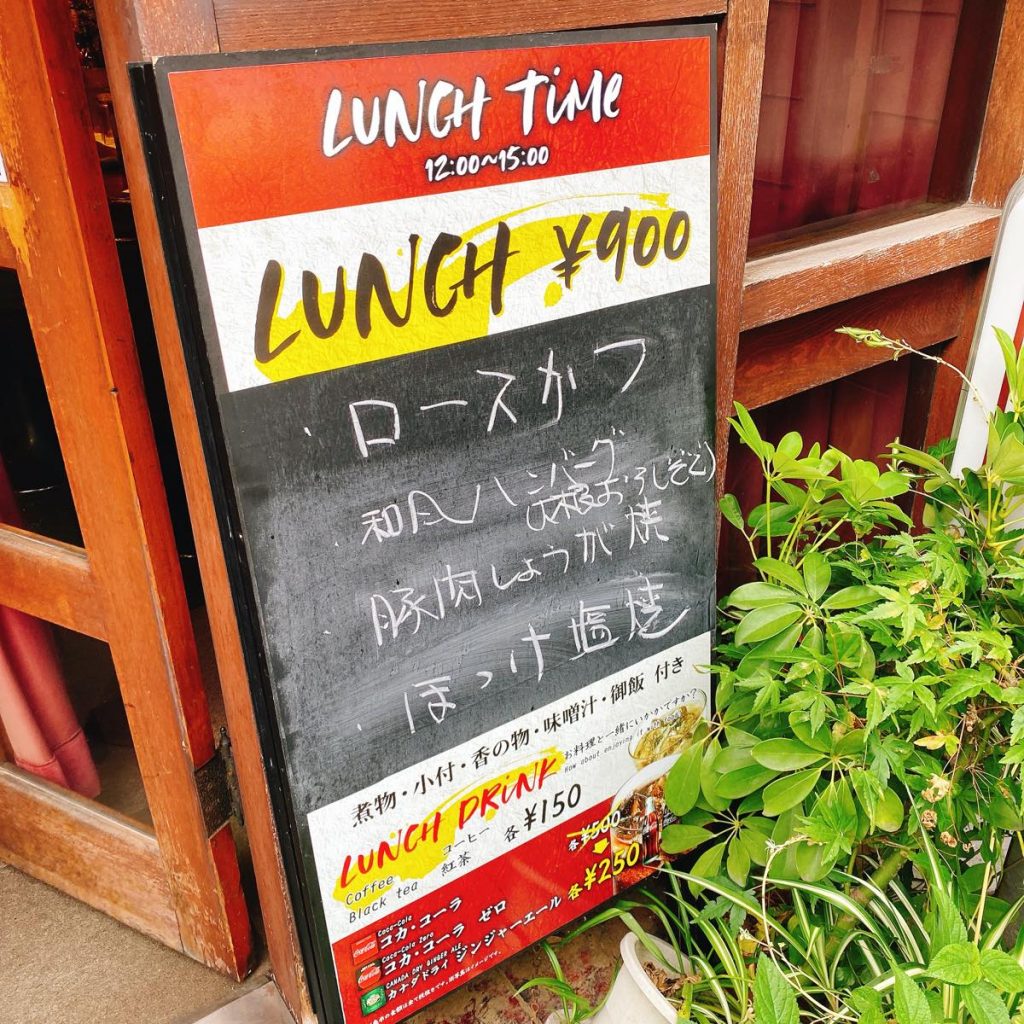 LUNCH TIME
12:00~15:00
LUNCH ¥900
・ロースかつ
・和風ハンバーグ
(大根おろしぞえ)
・豚肉しょうが焼
・ほっけ塩焼
煮物・小付・香の物・味噌汁・御飯 付き
お料理と一緒にいかかですか?
How about enjoying it
LUNCH DRINK
Coffee コーヒー
Black tea 紅茶
各¥150
各¥500
各¥250
Coca-Cola
コカ・コーラ
Coca-Cola Zero
コカ・コーラ ゼロ
CANADA DRY GINGER ALE
カナダドライ ジンジャーエール